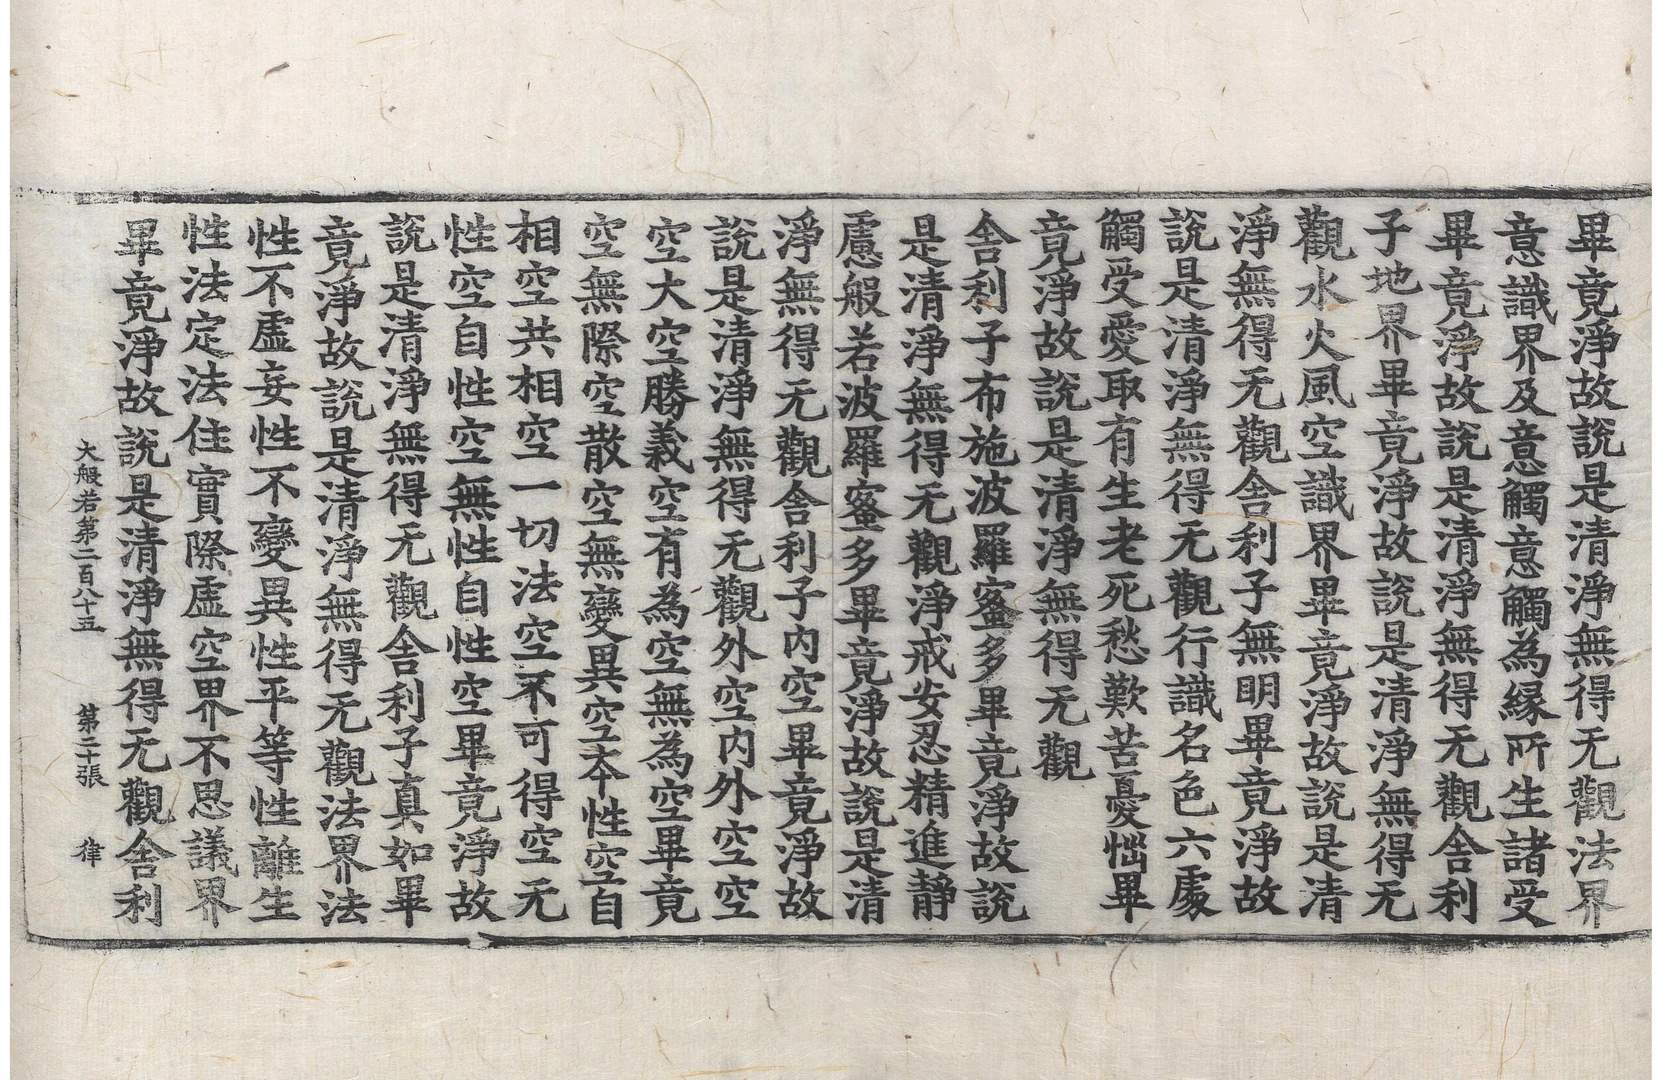 畢竟淨故說是清淨無得无觀法界
意識界及意觸意觸為緣所生諸受
畢竟淨故說是清淨無得无觀舍利
子地界畢竟淨故說是清淨無得无
觀水火風空識界畢竟淨故說是清
淨無得无觀舍利子無明畢竟淨故
說是清淨無得无觀行識名色六處
觸受愛取有生老死愁歎苦憂惱畢
竟淨故說是清淨無得无觀
舍利子布施波羅蜜多畢竟淨故說
是清淨無得无觀淨戒安忍精進靜
慮般若波羅蜜多畢竟淨故說是清
淨無得无觀舍利子內空畢竟淨故
說是清淨無得无觀外空內外空空
空大空勝義空有為空無為空畢竟
空無際空散空無變異空本性空自
相空共相空一切法空不可得空无
性空自性空無性自性空畢竟淨故
說是清淨無得无觀舍利子真如畢
竟淨故說是清淨無得无觀法界法
性不虛妄性不變異性平等性離生
性法定法住實際虛空界不思議界
畢竟淨故說是清淨無得无觀舍利
大般若第二百八十五 第二十張 律